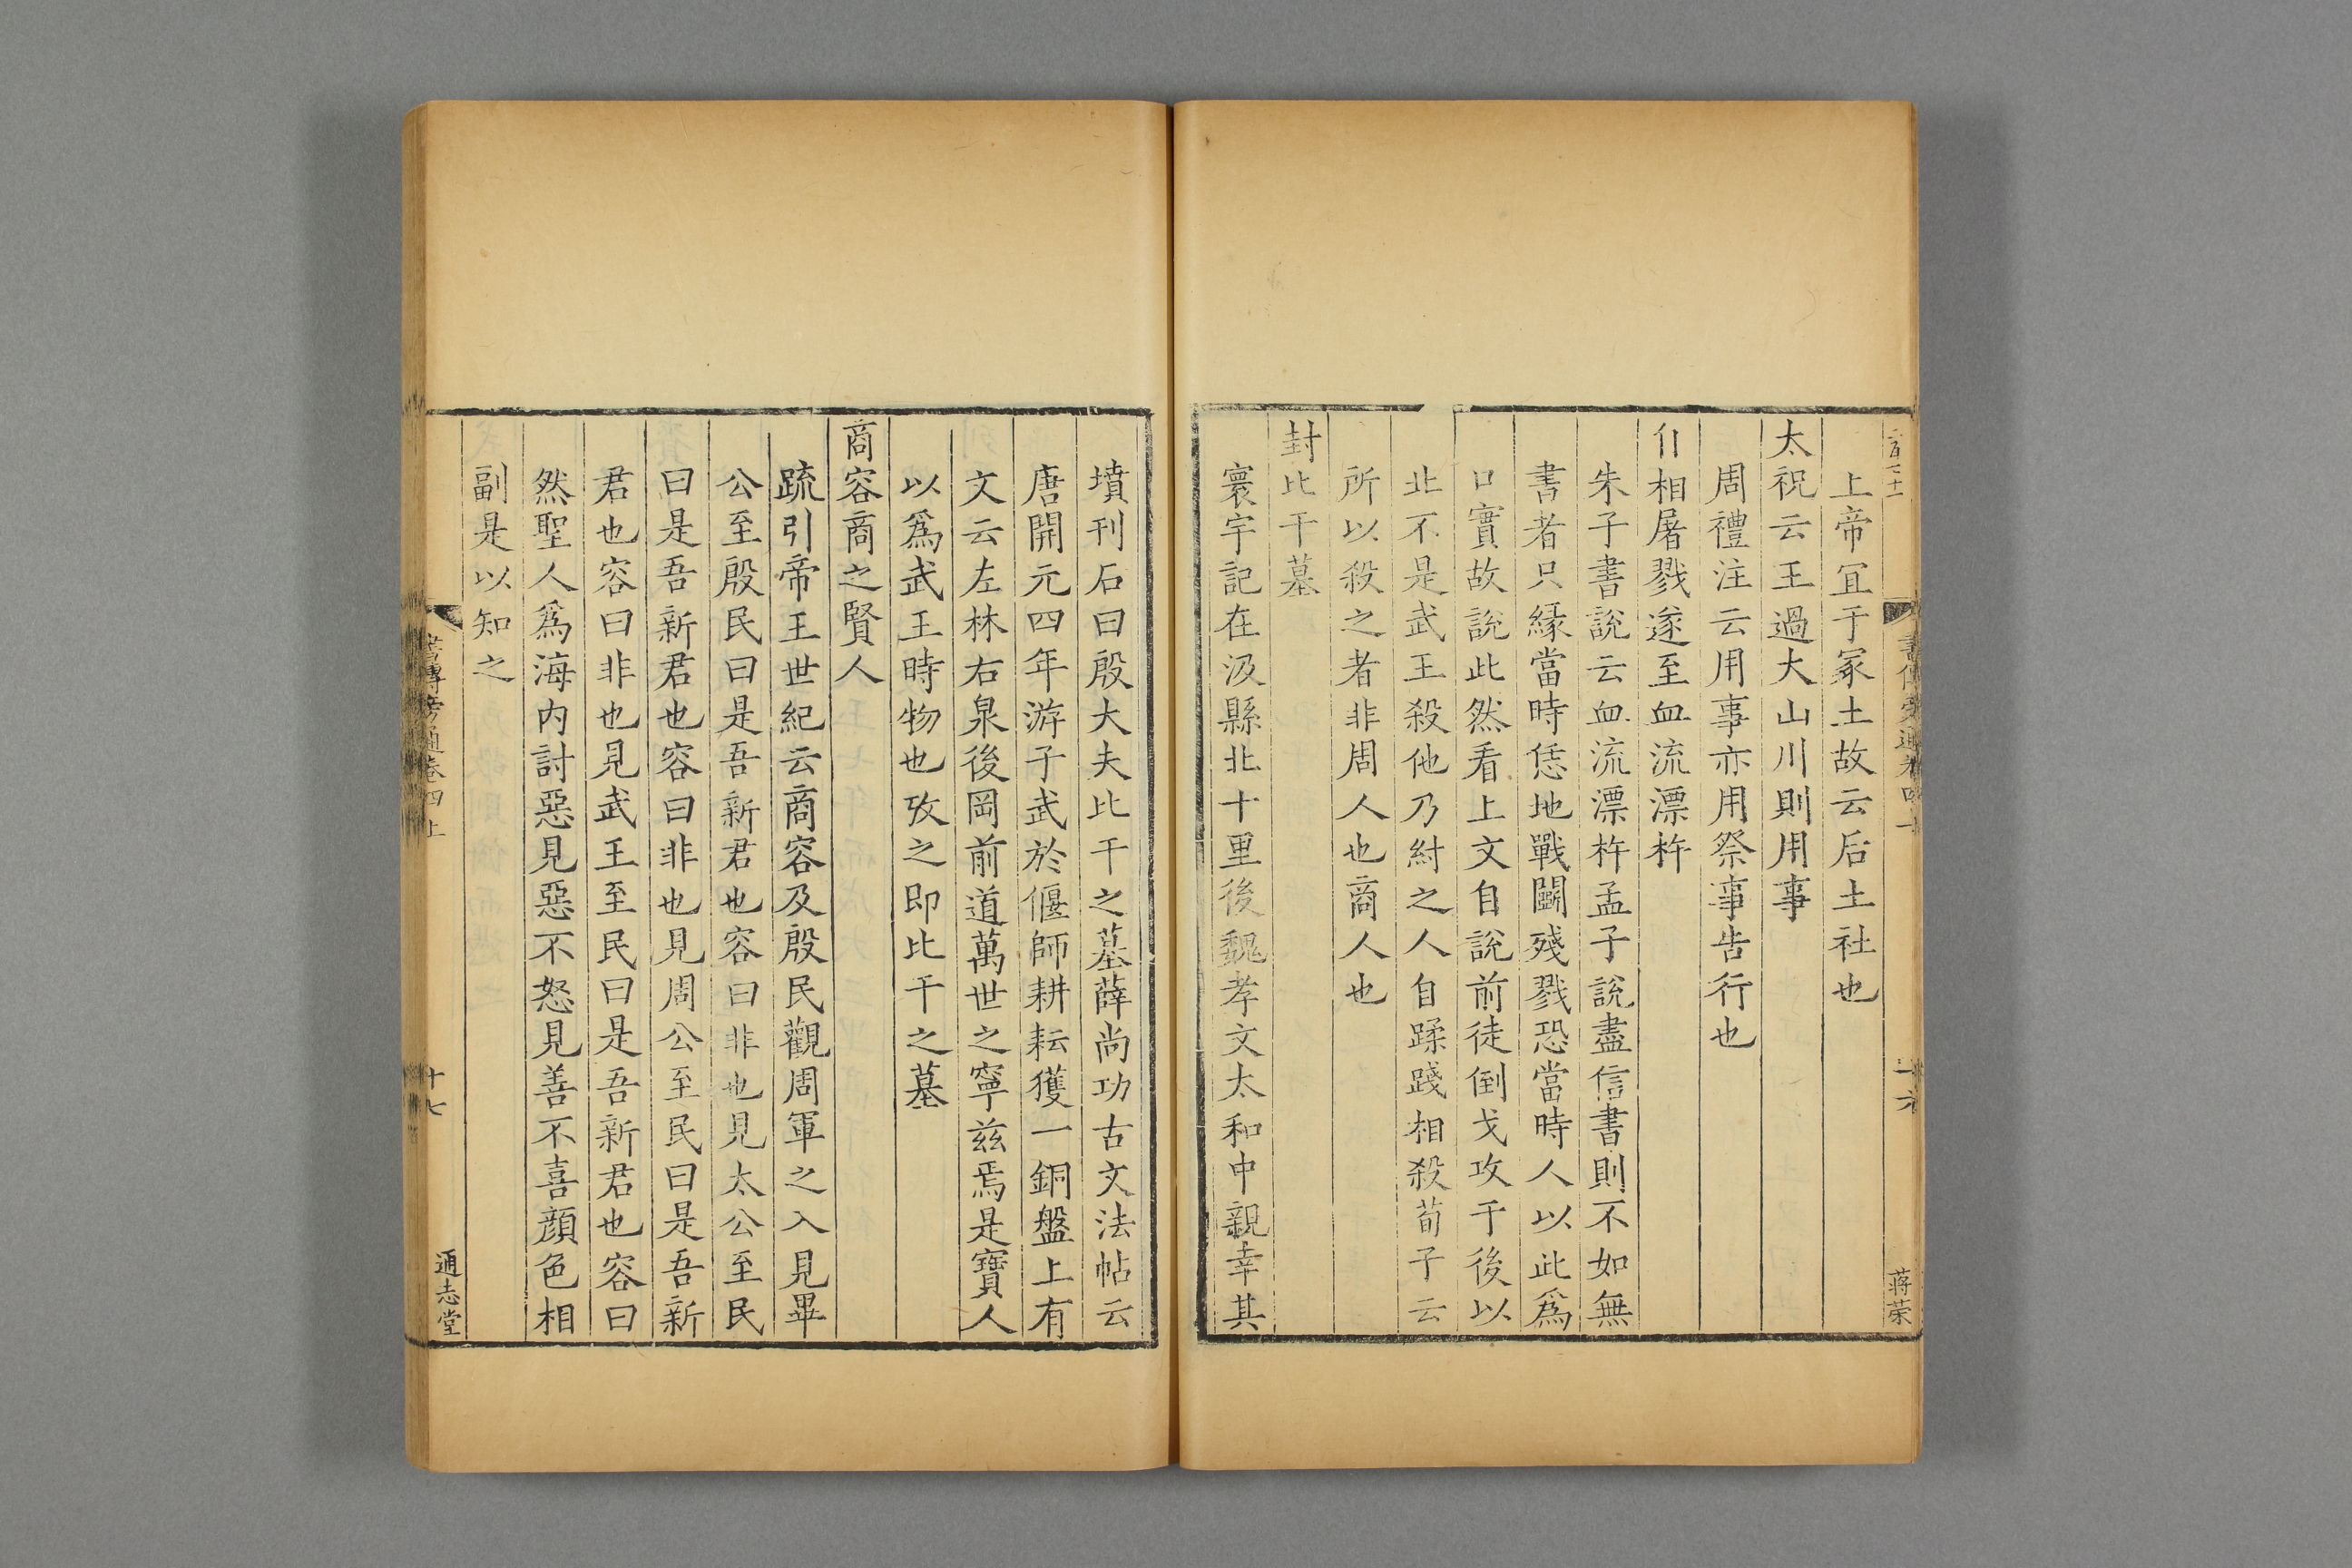 上帝冝于冢土故云后土社也
太祝云王過大山川則用事
周禮注云用事亦用祭事告行也
自相屠戮遂至血流漂杵
朱子書說云血流漂杵孟子說盡信書則不如無
書者只縁當時恁地戰鬬殘戮恐當時人以此爲
口實故說此然看上文自說前徒倒戈攻于後以
北不是武王殺他乃紂之人自蹂踐相殺荀子云
所以殺之者非周人也商人也
封比干墓
寰宇記在汲縣北十里後魏孝文太和中親幸其
蒋荣
墳刊石曰殷大夫比干之墓薛尚功古文法帖云
唐開元四年游子武於偃師耕耘獲一銅盤上有
文云左林右泉後岡前道萬世之寧兹焉是寶人
以爲武王時物也攷之即比干之墓
商容商之賢人
疏引帝王世紀云商容及殷民觀周軍之入見畢
公至殷民曰是吾新君也容曰非也見太公至民
曰是吾新君也容曰非也見周公至民曰是吾新
君也容曰非也見武王至民曰是吾新君也容曰
然聖人爲海内討惡見惡不怒見善不喜顔色相
副是以知之
書傳旁通卷四上
十七
通志堂